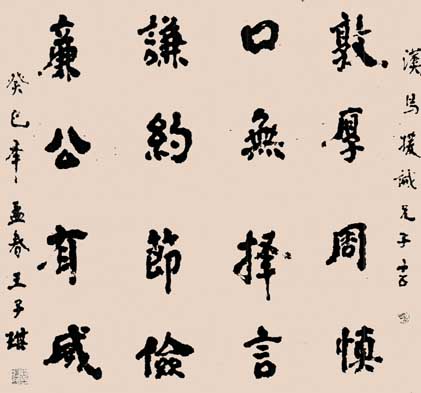 漢馬援誡兄子言
敦厚周慎
口無擇言
謙約節儉
廉公有威
癸巳年孟春王子琪